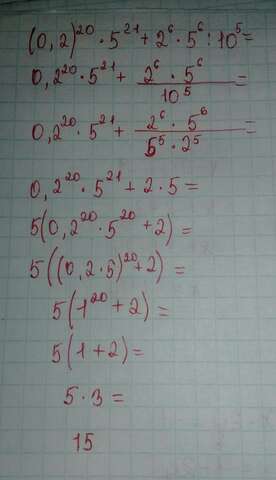 (0,2)²⁰ · 5²¹ + 2⁶ · 5⁶ : 10⁵ =
0,2²⁰ · 5²¹ + 2⁶ · 5⁶ / 10⁵ =
0,2²⁰ · 5²¹ + 2⁶ · 5⁶ / 5⁵ · 2⁵ =
0,2²⁰ · 5²¹ + 2 · 5 =
5(0,2²⁰ · 5²⁰ + 2) =
5((0,2 · 5)²⁰ + 2) =
5(1²⁰ + 2) =
5(1 + 2) =
5 · 3 =
15